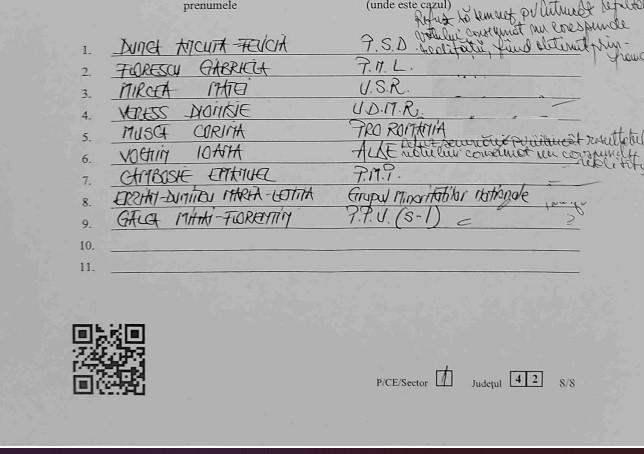 prenumele (unde este cazul)
Refuz să semnez pv întrucât rezultatul
votului consemnat nu corespunde
realității, fiind obținut prin
1. DUNCA ANCUTA-FELICIA P.S.D.
2. FLORESCU GABRIELA P.N.L.
3. MIRCEA MATEI U.S.R.
4. VERESS DIONISIE U.D.M.R.
5. MUSCA CORINA PRO ROMANIA
6. VOCHIN IOANA ALDE Refuz semnării pv întrucât rezultatul
votului consemnat nu corespunde
realității
7. EMANUEL P.M.P.
8. MARIA-LETITIA Grupul Minorităților Naționale
9. GÂLCA MIHAI-FLORENTIN P.P.U. (S-l)
10.
11.
P/CE/Sector 1 Județul 4 2 8/8